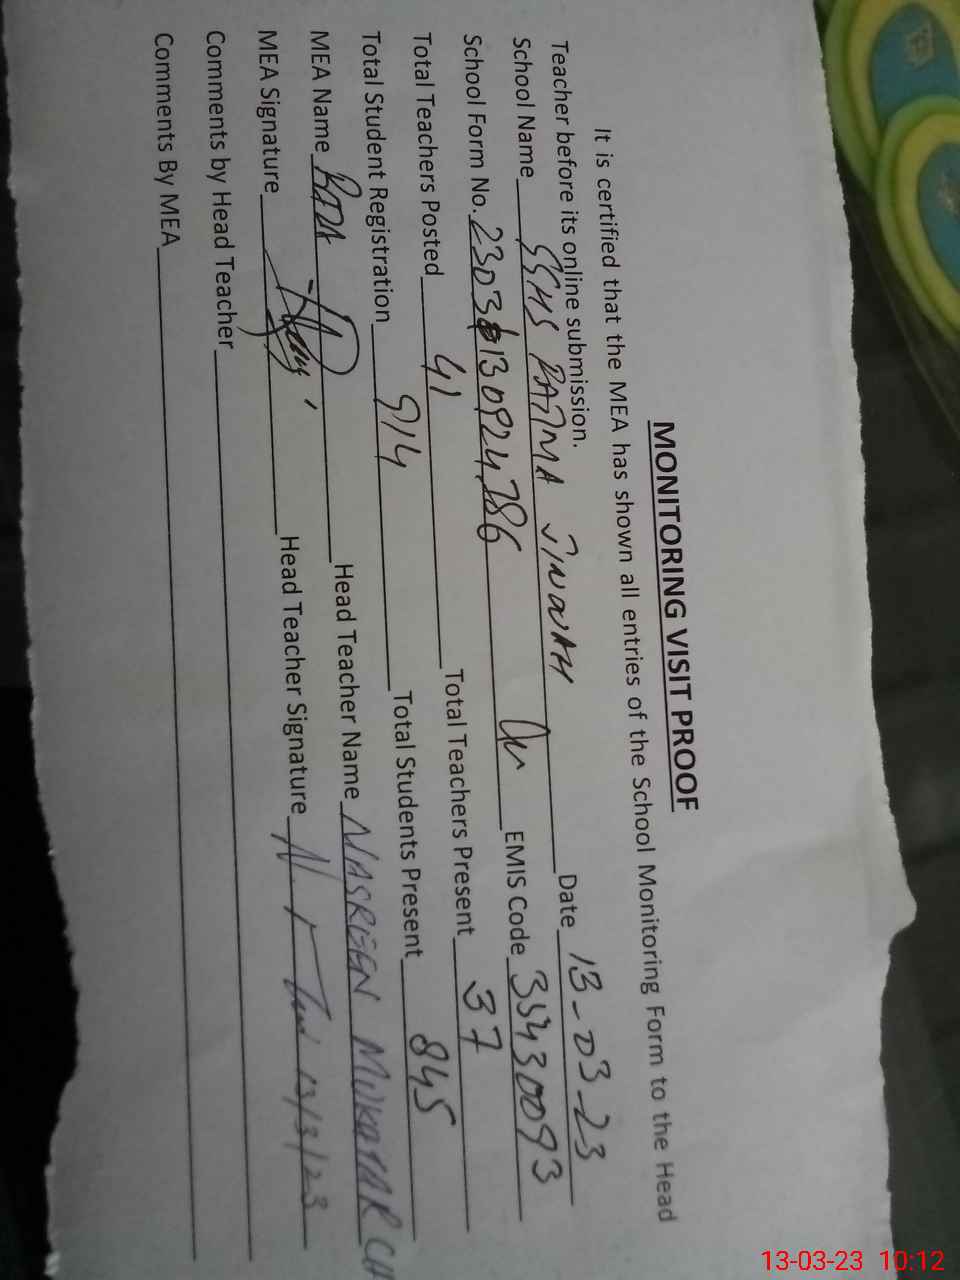 MONITORING VISIT PROOF
It is certified that the MEA has shown all entries of the School Monitoring Form to the Head
Teacher before its online submission.
School Name GGHS FATIMA JINNAH Date 13-03-23
School Form No. 2303 130924786 EMIS Code 35430093
Total Teachers Posted 41 Total Teachers Present 37
Total Student Registration 914 Total Students Present 845
MEA Name RAZA Head Teacher Name NASREEN MUKHTAR CH
MEA Signature Head Teacher Signature 13/3/23
Comments by Head Teacher
Comments By MEA
13-03-23 10:12